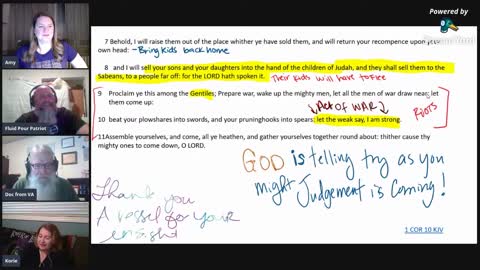 Powered by
7 Behold, I will raise them out of the place whither ye have sold them, and will return your recompence upon
own head: - Bring kids back home
8 and I will sell your sons and your daughters into the hand of the children of Judah, and they shall sell them to the
Sabeans, to a people far off: for the LORD hath spoken it. Their kids will have to flee
9 Proclaim ye this among the Gentiles; Prepare war, wake up the mighty men, let all the men of war draw near; let
them come up:
↓ Act of WAR ↓
RIOTS
10 beat your plowshares into swords, and your pruninghooks into spears: let the weak say, I am strong.
11Assemble yourselves, and come, all ye heathen, and gather yourselves together round about: thither cause thy
mighty ones to come down, O LORD.
GOD is telling try as you
might Judgement is Coming!
Thank you
A vessel for your
insight
1 COR 10 KJV
Amy
Fluid Pour Patriot
Doc from VA
Korie